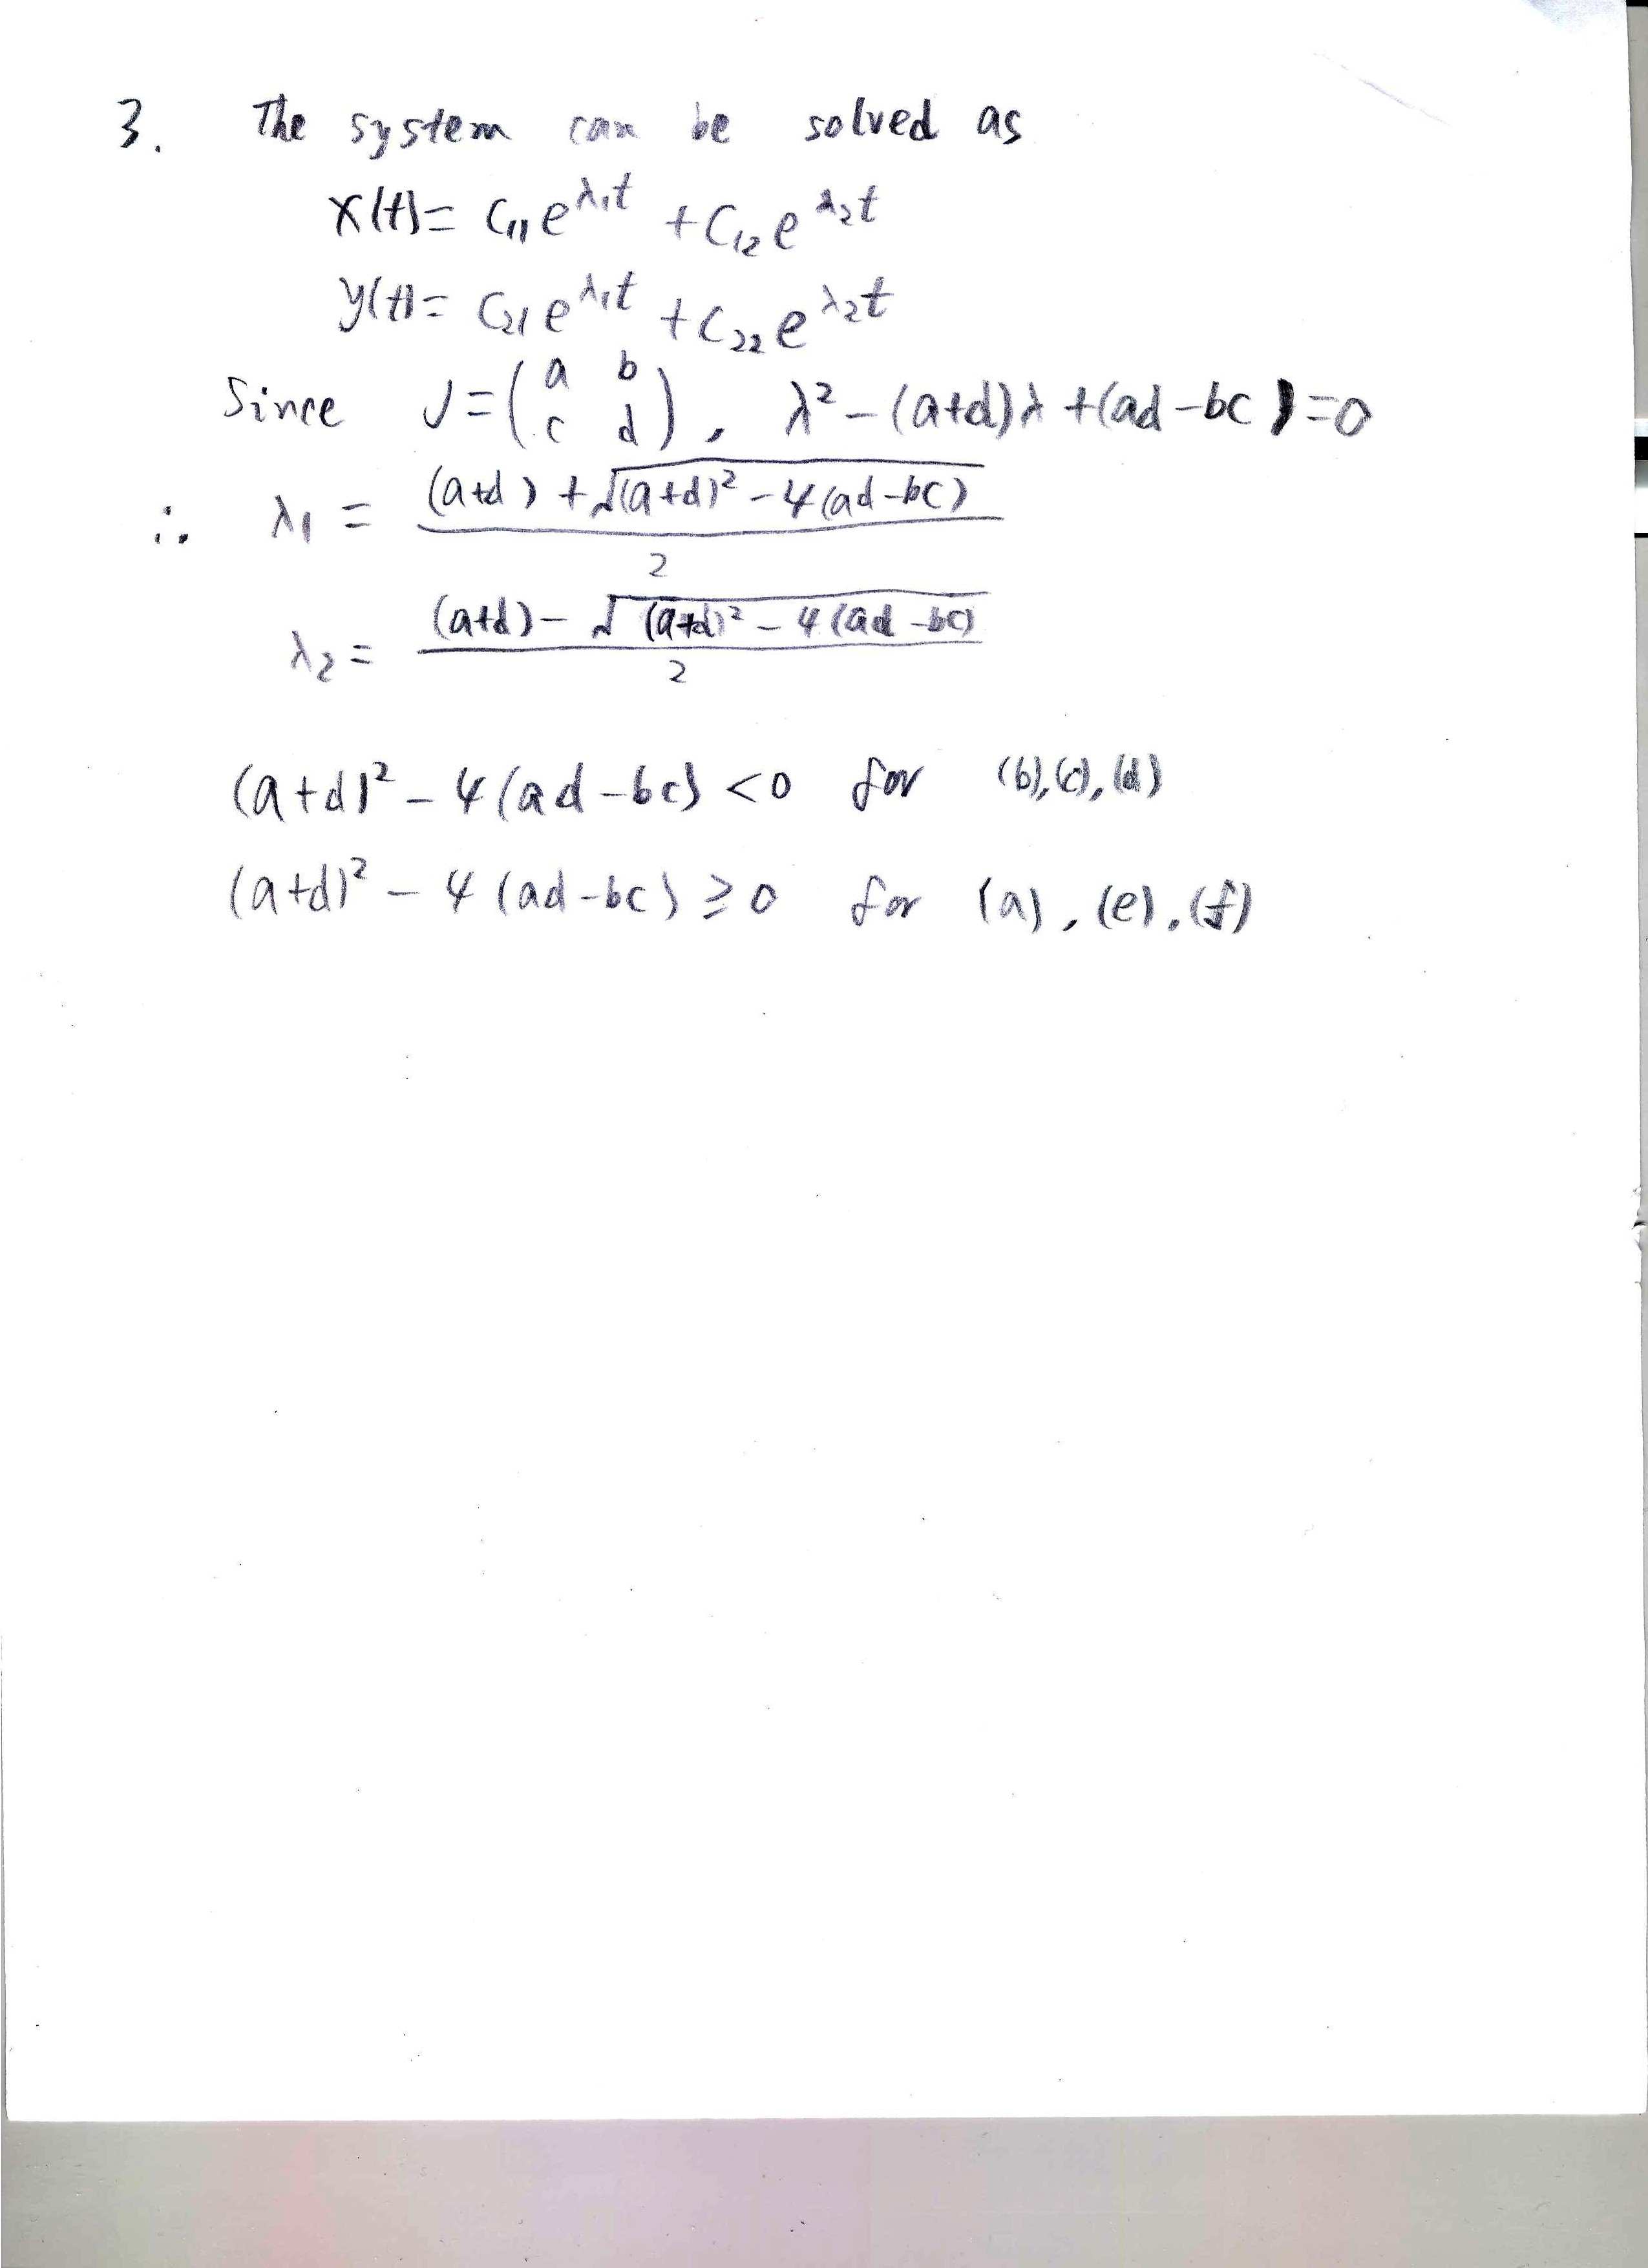 3. The system can be solved as
x(t)= c₁₁e^λ₁t + c₁₂e^λ₂t
y(t)= c₂₁e^λ₁t + c₂₂e^λ₂t
Since J=(a b
c d), λ²-(a+d)λ+(ad-bc)=0
∴ λ₁ = (a+d)+√(a+d)²-4(ad-bc)
2
λ₂ = (a+d)-√(a+d)²-4(ad-bc)
2
(a+d)²-4(ad-bc)<0 for (b),(c),(d)
(a+d)²-4(ad-bc)≥0 for (a),(e),(f)